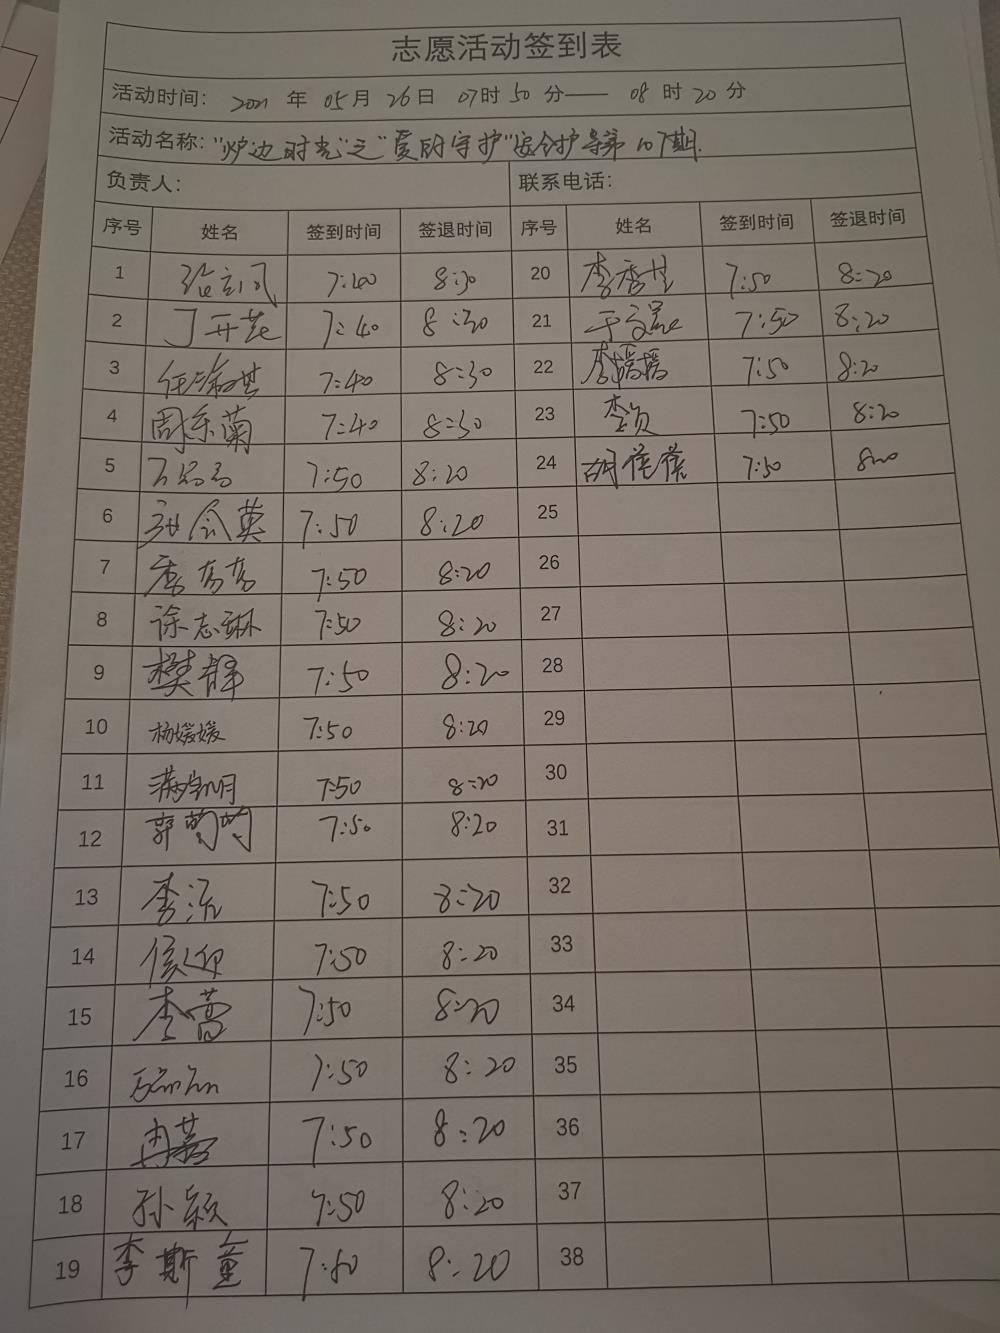 志愿活动签到表
活动时间: 2021 年 05月 26日 07时 50 分—— 08 时 20 分
活动名称: "炉边时光"之"爱的守护"安全护导第107期.
负责人: 联系电话:
序号 姓名 签到时间 签退时间 序号 姓名 签到时间 签退时间
1 7:40 8:30 20 李秀 7:50 8:20
2 丁开花 7:40 8:30 21 于 7:50 8:20
3 任 7:40 8:30 22 李 7:50 8:20
4 周东菊 7:40 8:30 23 7:50 8:20
5 7:50 8:20 24 胡倩倩 7:50 8:20
6 张会英 7:50 8:20 25
7 7:50 8:20 26
8 徐志琳 7:50 8:20 27
9 樊静 7:50 8:20 28
10 杨媛媛 7:50 8:20 29
11 满 明月 7:50 8:20 30
12 郭 7:50 8:20 31
13 李流 7:50 8:20 32
14 侯迎 7:50 8:20 33
15 李蕾 7:50 8:20 34
16 7:50 8:20 35
17 冉 7:50 8:20 36
18 孙颖 7:50 8:20 37
19 李斯童 7:50 8:20 38